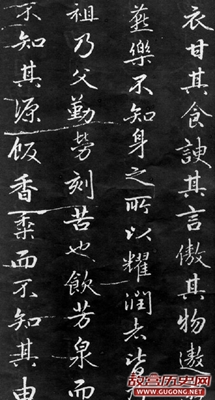 衣甘其食諛其言傲其物遨
蕋樂不知身之所以耀潤者皆
祖乃父勤勞刻苦也飲芳泉而
不知其源飯香黍而不知其由
故宫历史网